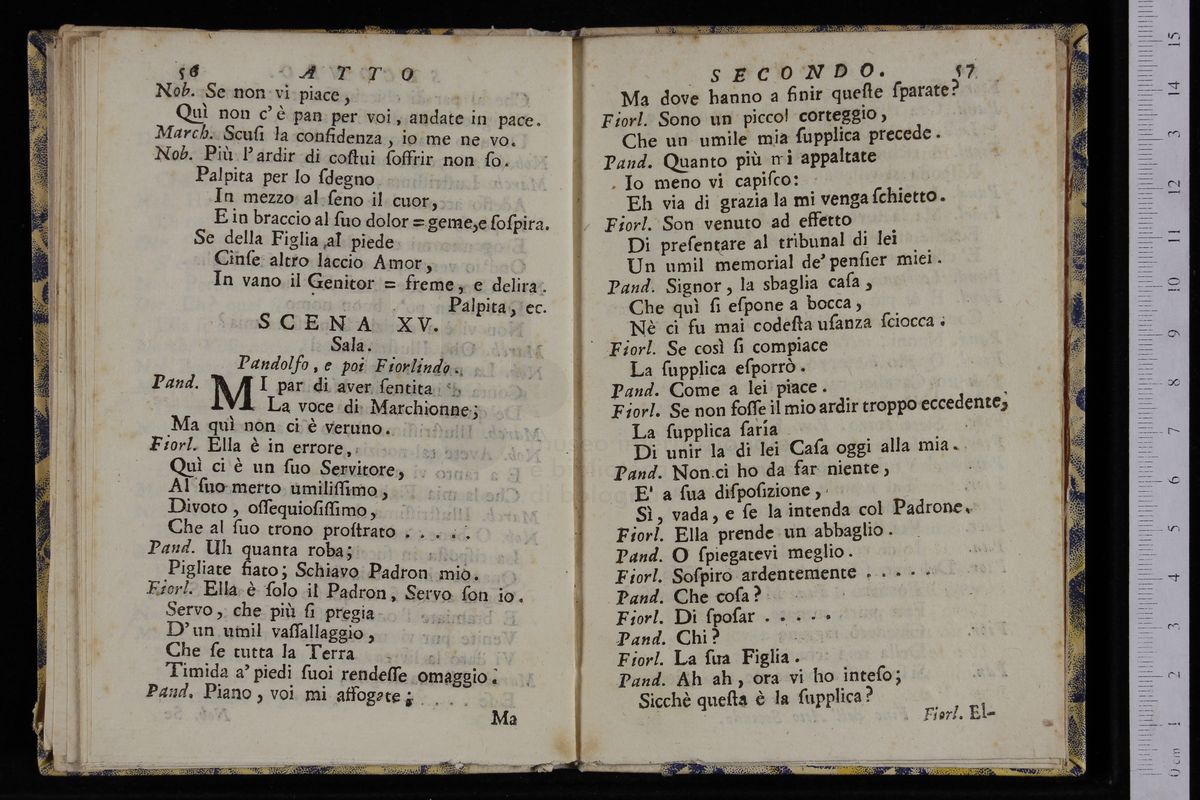 56 ATTO
Nob. Se non vi piace,
Quì non c'è pan per voi, andate in pace.
March. Scuſi la confidenza, io me ne vo.
Nob. Più l'ardir di coſtui ſoffrir non ſo.
Palpita per lo ſdegno
In mezzo al ſeno il cuor,
E in braccio al ſuo dolor = geme, e ſoſpira.
Se della Figlia al piede
Cinſe altro laccio Amor,
In vano il Genitor = freme, e delira.
Palpita, ec.
SCENA XV.
Sala.
Pandolfo, e poi Fiorlindo.
Pand. MI par di aver ſentita
La voce di Marchionne;
Ma quì non ci è veruno.
Fiorl. Ella è in errore,
Quì ci è un ſuo Servitore,
Al ſuo merto umiliſſimo,
Divoto, oſſequioſiſſimo,
Che al ſuo trono proſtrato . . . . .
Pand. Uh quanta roba;
Pigliate fiato; Schiavo Padron mio.
Fiorl. Ella è ſolo il Padron, Servo ſon io.
Servo, che più ſi pregia
D'un umil vaſſallaggio,
Che ſe tutta la Terra
Timida a' piedi ſuoi rendeſſe omaggio.
Pand. Piano, voi mi affogate;
Ma
SECONDO. 57
Ma dove hanno a finir queſte ſparate?
Fiorl. Sono un piccol corteggio,
Che un umile mia ſupplica precede.
Pand. Quanto più mi appaltate
Io meno vi capiſco:
Eh via di grazia la mi venga ſchietto.
Fiorl. Son venuto ad effetto
Di preſentare al tribunal di lei
Un umil memorial de' penſier miei.
Pand. Signor, la sbaglia caſa,
Che quì ſi eſpone a bocca,
Nè ci fu mai codeſta uſanza ſciocca.
Fiorl. Se così ſi compiace
La ſupplica eſporrò.
Pand. Come a lei piace.
Fiorl. Se non foſſe il mio ardir troppo eccedente,
La ſupplica ſaría
Di unir la di lei Caſa oggi alla mia.
Pand. Non ci ho da far niente,
E' a ſua diſpoſizione,
Sì, vada, e ſe la intenda col Padrone.
Fiorl. Ella prende un abbaglio.
Pand. O ſpiegatevi meglio.
Fiorl. Soſpiro ardentemente . . . .
Pand. Che coſa?
Fiorl. Di ſpoſar . . . . .
Pand. Chi?
Fiorl. La ſua Figlia.
Pand. Ah ah, ora vi ho inteſo;
Sicchè queſta è la ſupplica?
Fiorl. El-
0 cm 1 2 3 4 5 6 7 8 9 10 11 12 13 14 15